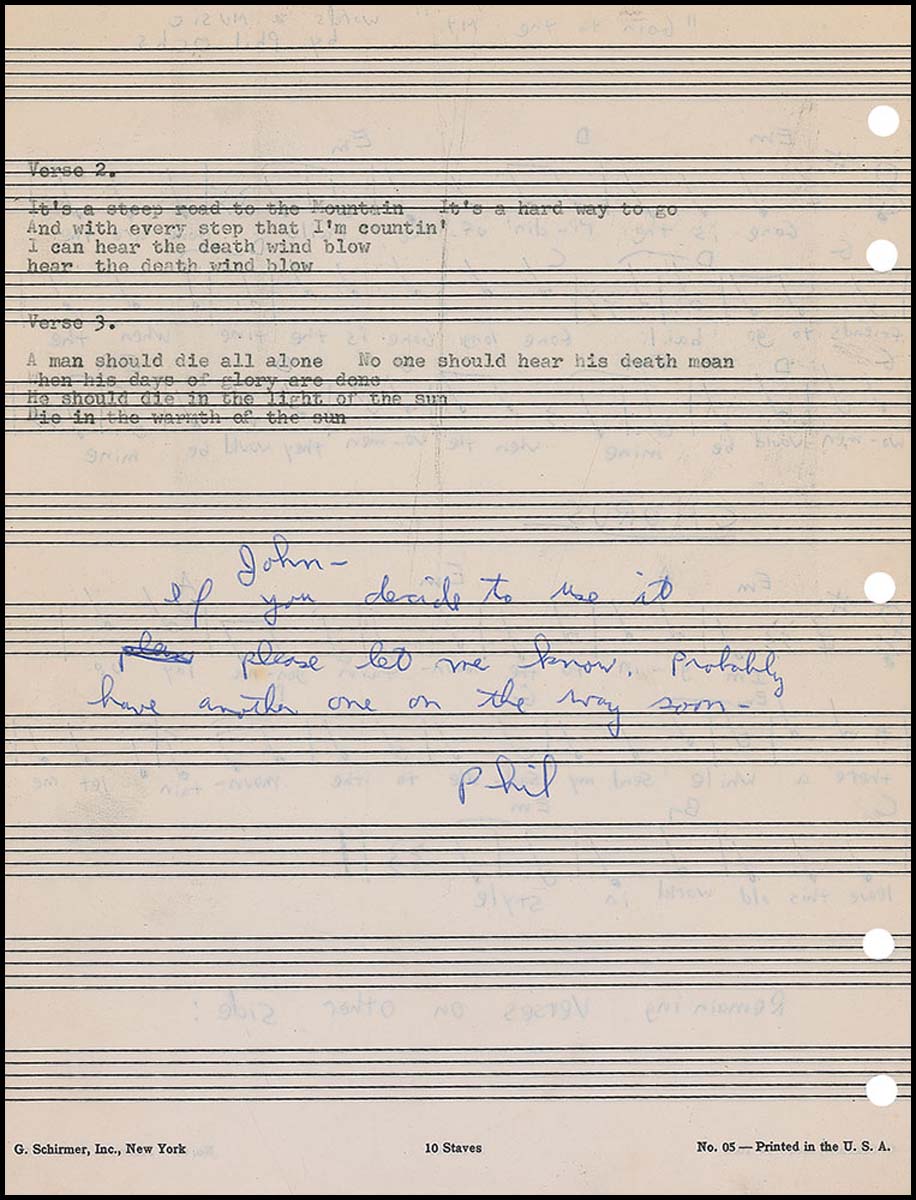 Verse 2.
It's a steep road to the Mountain   It's a hard way to go
And with every step that I'm countin'
I can hear the death wind blow
hear  the death wind blow
Verse 3.
A man should die all alone   No one should hear his death moan
When his days of glory are done
He should die in the light of the sun
Die in the warmth of the sun
John-
If you decide to use it
please please let me know. Probably
have another one on the way soon-
Phil
G. Schirmer, Inc., New York 10 Staves No. 05 — Printed in the U. S. A.